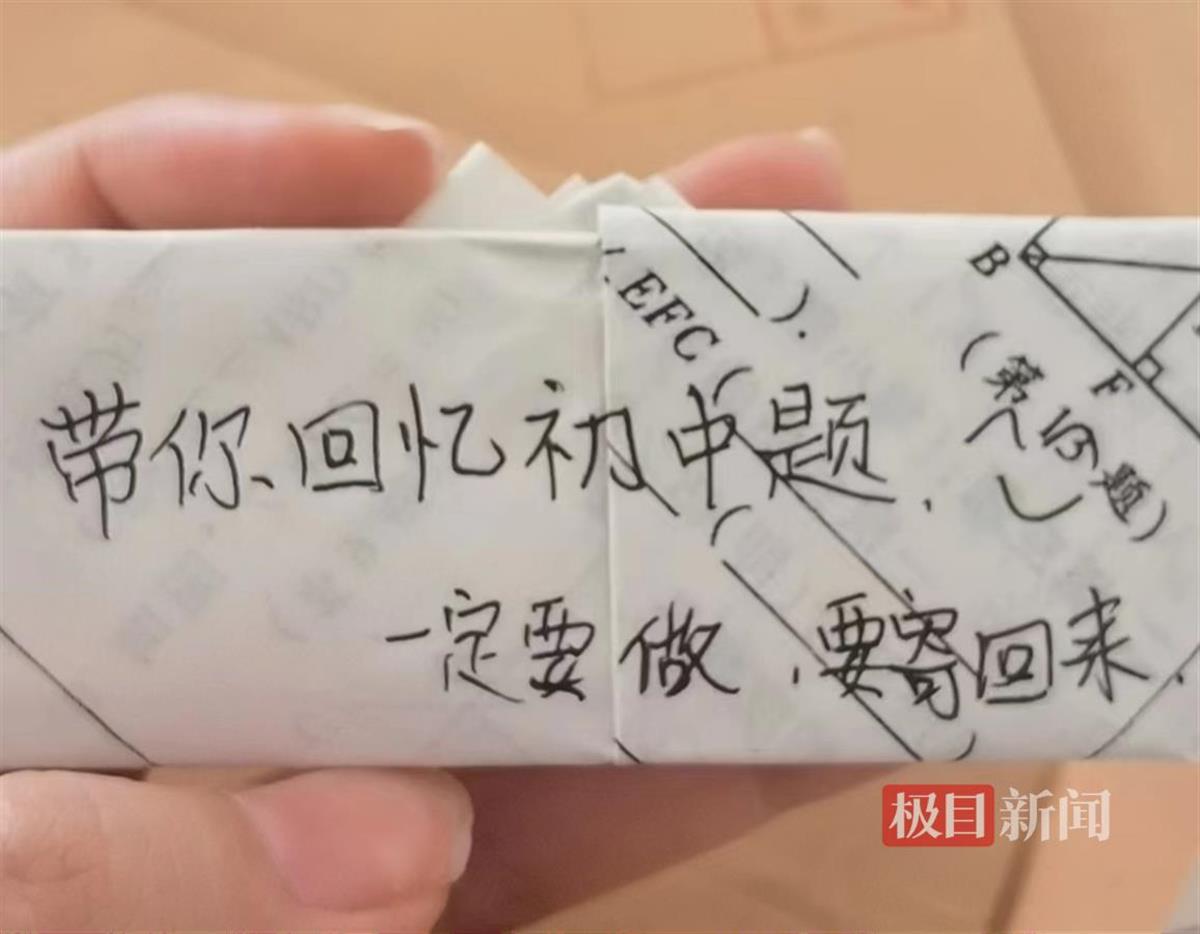 EFC (
).
B
F
(第 题)
带你回忆初中题.
一定要做.要寄回来.
极目新闻